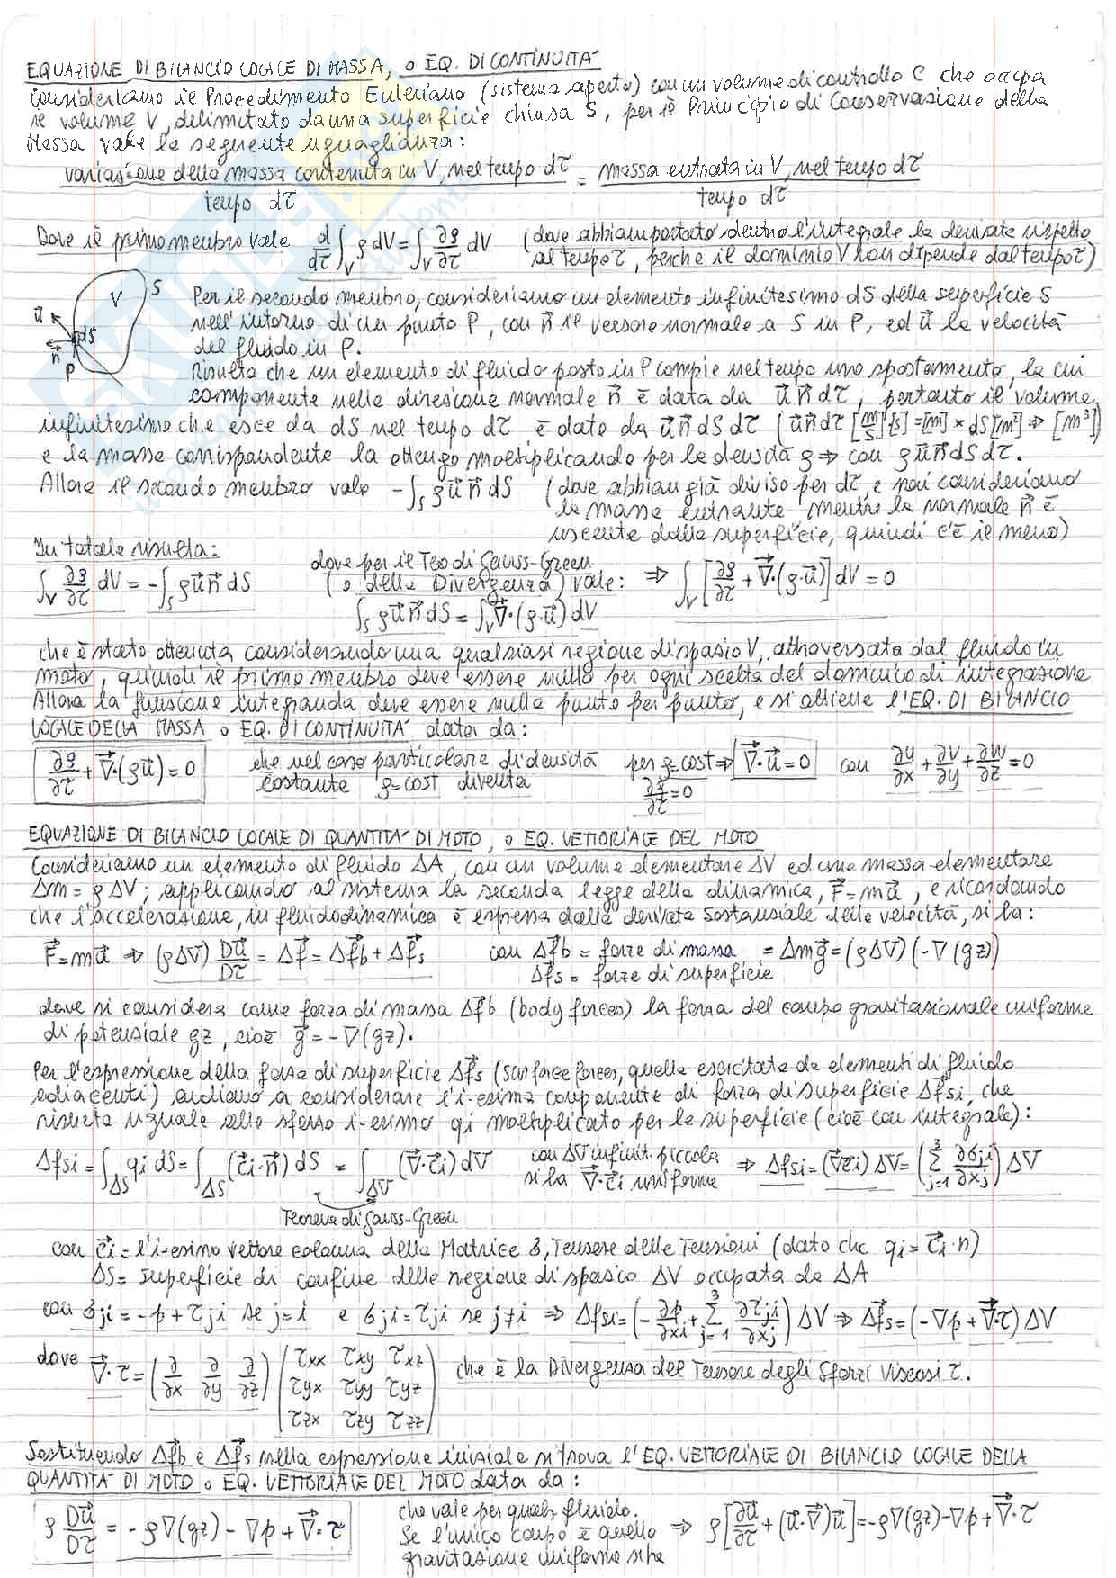 EQUAZIONE DI BILANCIO LOCALE DI MASSA, o EQ. DI CONTINUITA'
Consideriamo il Procedimento Euleriano (sistema aperto) con un volume di controllo C che occupa
il volume V, delimitato da una superficie chiusa S, per il Principio di Conservazione della
Massa vale la seguente uguaglianza:
variazione della massa contenuta in V, nel tempo dτ = massa entrata in V, nel tempo dτ
tempo dτ tempo dτ
Dove il primo membro vale d/dτ ∫_V ρ dV = ∫_V ∂ρ/∂τ dV (dove abbiam portato dentro l'integrale la derivata rispetto
al tempo τ, perché il dominio V non dipende dal tempo τ)
V S
Per il secondo membro, consideriamo un elemento infinitesimo dS della superficie S
u⃗ dS n⃗ P
nell'intorno di un punto P, con n⃗ il versore normale a S in P, ed u⃗ la velocità
del fluido in P.
Risulta che un elemento di fluido posto in P compie nel tempo uno spostamento, la cui
componente nella direzione normale n⃗ è data da u⃗ n⃗ dτ, pertanto il volume
infinitesimo che esce da dS nel tempo dτ è dato da u⃗ n⃗ dS dτ [u⃗ n⃗ dτ [m/s][s]=[m] * dS[m²] ⇒ [m³]]
e la massa corrispondente la ottengo moltiplicando per la densità ρ ⇒ con ρ u⃗ n⃗ dS dτ.
Allora il secondo membro vale -∫_S ρ u⃗ n⃗ dS (dove abbiam già diviso per dτ, e noi consideriamo
la massa entrante mentre la normale n⃗ è
uscente dalla superficie, quindi c'è il meno)
In totale risulta:
∫_V ∂ρ/∂τ dV = -∫_S ρ u⃗ n⃗ dS dove per il Teo di Gauss-Green
(o della Divergenza) vale: ⇒ ∫_V [∂ρ/∂τ + ∇⃗·(ρ·u⃗)] dV = 0
∫_S ρ u⃗ n⃗ dS = ∫_V ∇⃗·(ρ·u⃗) dV
che è stato ottenuta considerando una qualsiasi regione di spazio V, attraversata dal fluido in
moto, quindi il primo membro deve essere nullo per ogni scelta del dominio di integrazione
Allora la funzione integranda deve essere nulla punto per punto, e si ottiene l'EQ. DI BILANCIO
LOCALE DELLA MASSA o EQ. DI CONTINUITA' data da:
∂ρ/∂τ + ∇⃗·(ρu⃗) = 0 che nel caso particolare di densità
costante ρ=cost diventa per ρ=cost ⇒ ∇⃗·u⃗ = 0 con ∂u/∂x + ∂v/∂y + ∂w/∂z = 0
∂ρ/∂τ = 0
EQUAZIONE DI BILANCIO LOCALE DI QUANTITA' DI MOTO, o EQ. VETTORIALE DEL MOTO
Consideriamo un elemento di fluido ΔA, con un volume elementare ΔV ed una massa elementare
Δm = ρ ΔV; applicando al sistema la seconda legge della dinamica, F⃗=ma⃗, e ricordando
che l'accelerazione, in fluidodinamica è espressa dalla derivata sostanziale della velocità, si ha:
F⃗=ma⃗ ⇒ (ρΔV) Du⃗/Dτ = Δf⃗ = Δf⃗b + Δf⃗s con Δf⃗b = forze di massa = Δm g⃗ = (ρΔV)(-∇(gz))
Δf⃗s = forze di superficie
dove si considera come forza di massa Δf⃗b (body forces) la forza del campo gravitazionale uniforme
di potenziale gz, cioè g⃗ = -∇(gz).
Per l'espressione della forza di superficie Δf⃗s (surface forces, quelle esercitate da elementi di fluido
adiacenti) andiamo a considerare l'i-esima componente di forza di superficie Δfsi, che
risulta uguale allo sforzo i-esimo qi moltiplicato per la superficie (cioè con integrale):
Δfsi = ∫_ΔS qi dS = ∫_ΔS (σ⃗i·n⃗) dS = ∫_ΔV (∇⃗·σ⃗i) dV con ΔV infinit. piccola
si ha ∇⃗·σ⃗i uniforme ⇒ Δfsi = (∇⃗σ⃗i) ΔV = (Σ_{j=1}^{3} ∂σji/∂xj) ΔV
Teorema di Gauss-Green
con σ⃗i = l'i-esimo vettore colonna della Matrice σ, Tensore delle Tensioni (dato che qi = σ⃗i·n)
ΔS = superficie di confine della regione di spazio ΔV occupata da ΔA
con σji = -p + τji se j=i e σji = τji se j≠i ⇒ Δfsi = (-∂p/∂xi + Σ_{j=1}^{3} ∂τji/∂xj) ΔV ⇒ Δf⃗s = (-∇p + ∇⃗·τ) ΔV
dove ∇⃗·τ = (∂/∂x ∂/∂y ∂/∂z) (τxx τxy τxz
τyx τyy τyz
τzx τzy τzz) che è la Divergenza del Tensore degli Sforzi Viscosi τ.
Sostituendo Δf⃗b e Δf⃗s nella espressione iniziale si trova l'EQ. VETTORIALE DI BILANCIO LOCALE DELLA
QUANTITA' DI MOTO o EQ. VETTORIALE DEL MOTO data da:
ρ Du⃗/Dτ = -ρ∇(gz) - ∇p + ∇⃗·τ che vale per qualsi fluido.
Se l'unico campo è quello
gravitazione uniforme si ha ⇒ ρ[∂u⃗/∂τ + (u⃗·∇⃗)u⃗] = -ρ∇(gz) - ∇p + ∇⃗·τ